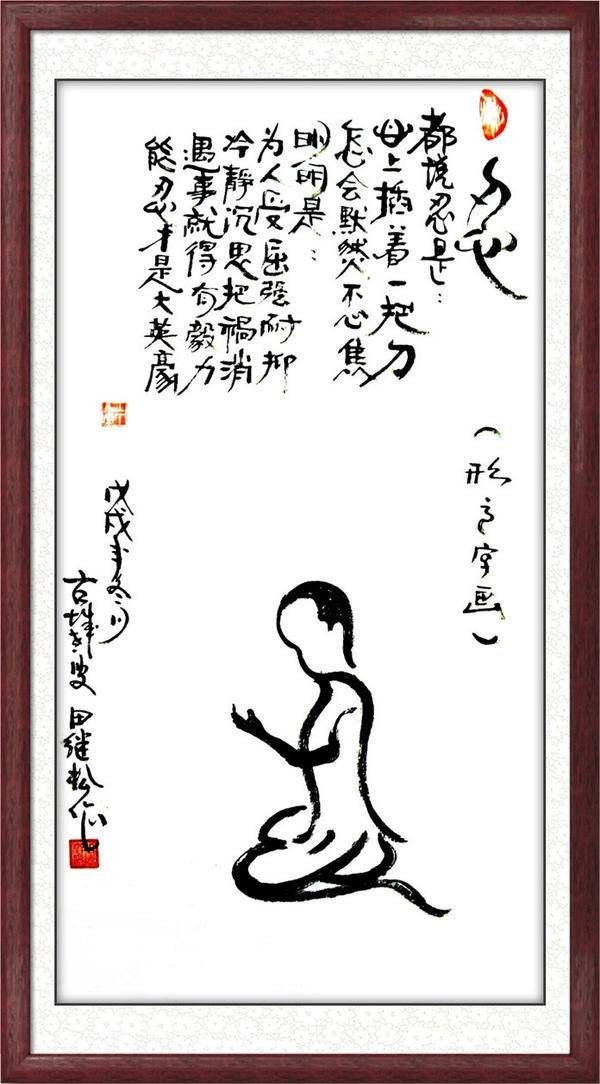 忍
都说忍是…
心上插着一把刀
怎会默然不心焦
明明是…
为人应屈强耐抑
冷静沉思把祸消
遇事就得有毅力
能忍才是大英豪
（形意字画）
戊戌年冬月
古城老叟 田继松作